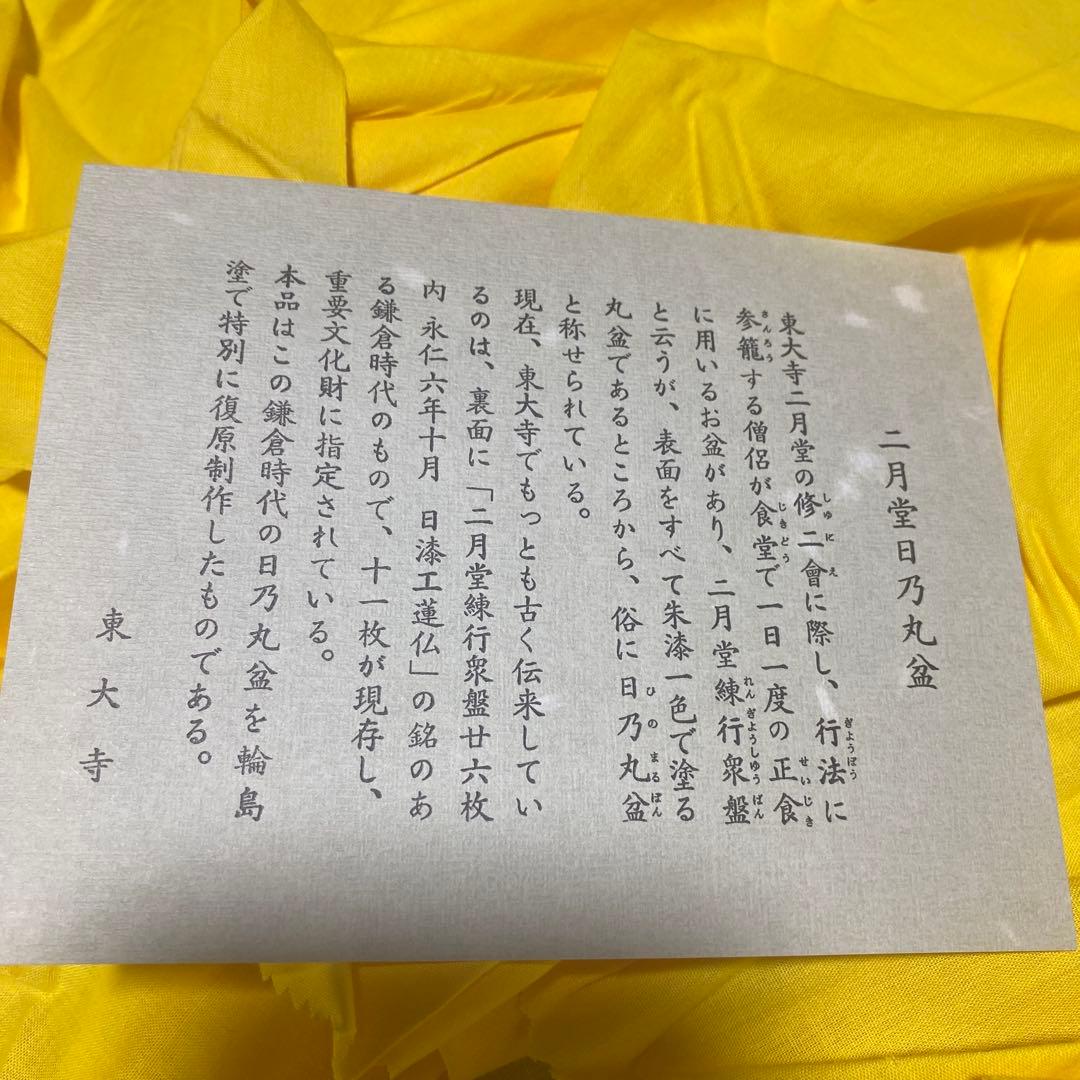 二月堂日乃丸盆
東大寺二月堂の修二會に際し、行法に
しゅにえ
ぎようぼう
参籠する僧侶が食堂で一日一度の正食
さんろう
じきどう
せいじき
に用いるお盆があり、二月堂練行衆盤
れんぎようしゆうばん
と云うが、表面をすべて朱漆一色で塗る
丸盆であるところから、俗に日乃丸盆
ひのまるぼん
と称せられている。
現在、東大寺でもっとも古く伝来してい
るのは、裏面に「二月堂練行衆盤廿六枚
内 永仁六年十月 日漆工蓮仏」の銘のあ
る鎌倉時代のもので、十一枚が現存し、
重要文化財に指定されている。
本品はこの鎌倉時代の日乃丸盆を輪島
塗で特別に復原制作したものである。
東大寺